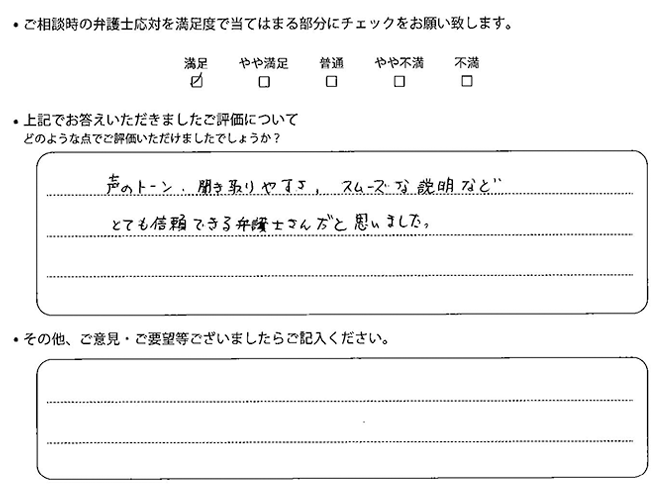 • ご相談時の弁護士応対を満足度で当てはまる部分にチェックをお願い致します。
満足 やや満足 普通 やや不満 不満
☑ □ □ □ □
• 上記でお答えいただきましたご評価について
どのような点でご評価いただけましたでしょうか？
声のトーン、聞き取りやすさ、スムーズな説明など
とても信頼できる弁護士さんだと思いました。
• その他、ご意見・ご要望等ございましたらご記入ください。